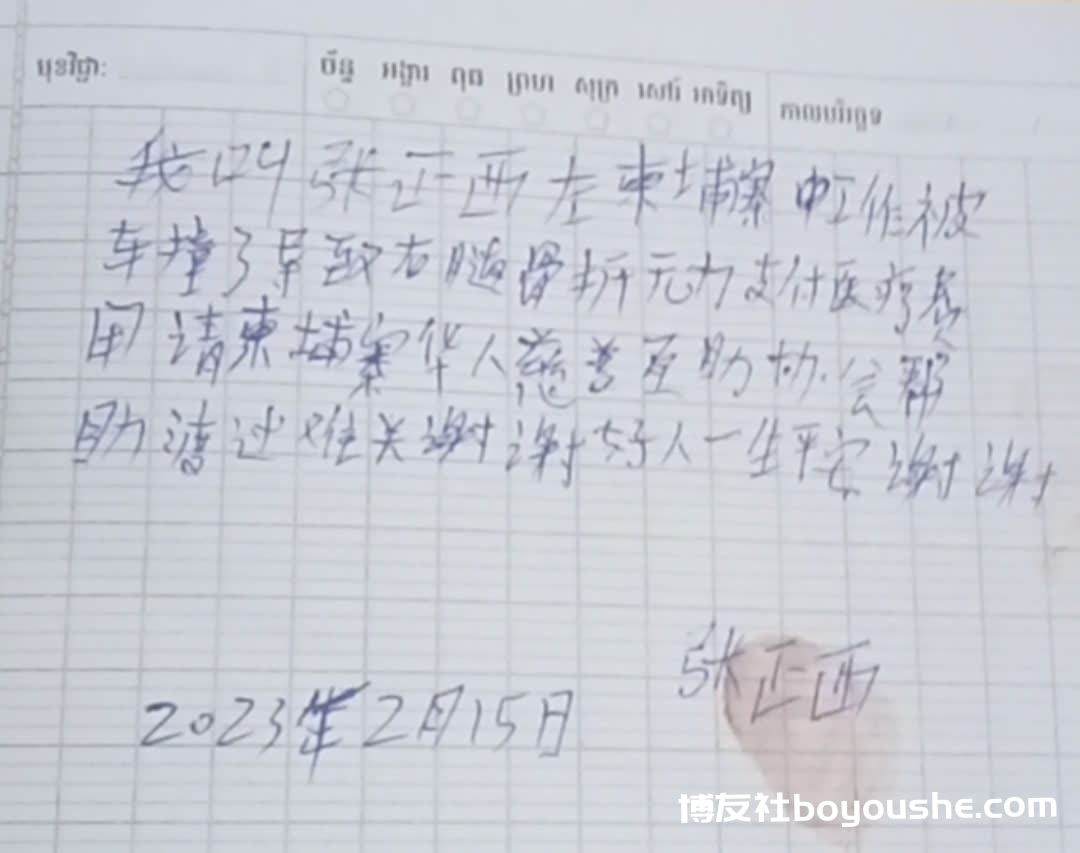 មុខវិជ្ជា:
ច័ន្ទ អង្គារ ពុធ ព្រហ សុក្រ សៅរ៍ អាទិត្យ
កាលបរិច្ឆេទ
我叫张正西在柬埔寨中工作被
车撞了导致右腿骨折无力支付医疗费
用请柬埔寨华人慈善互助协会帮
助渡过难关谢谢好人一生平安谢谢
张正西
2023年2月15日
博友社boyoushe.com